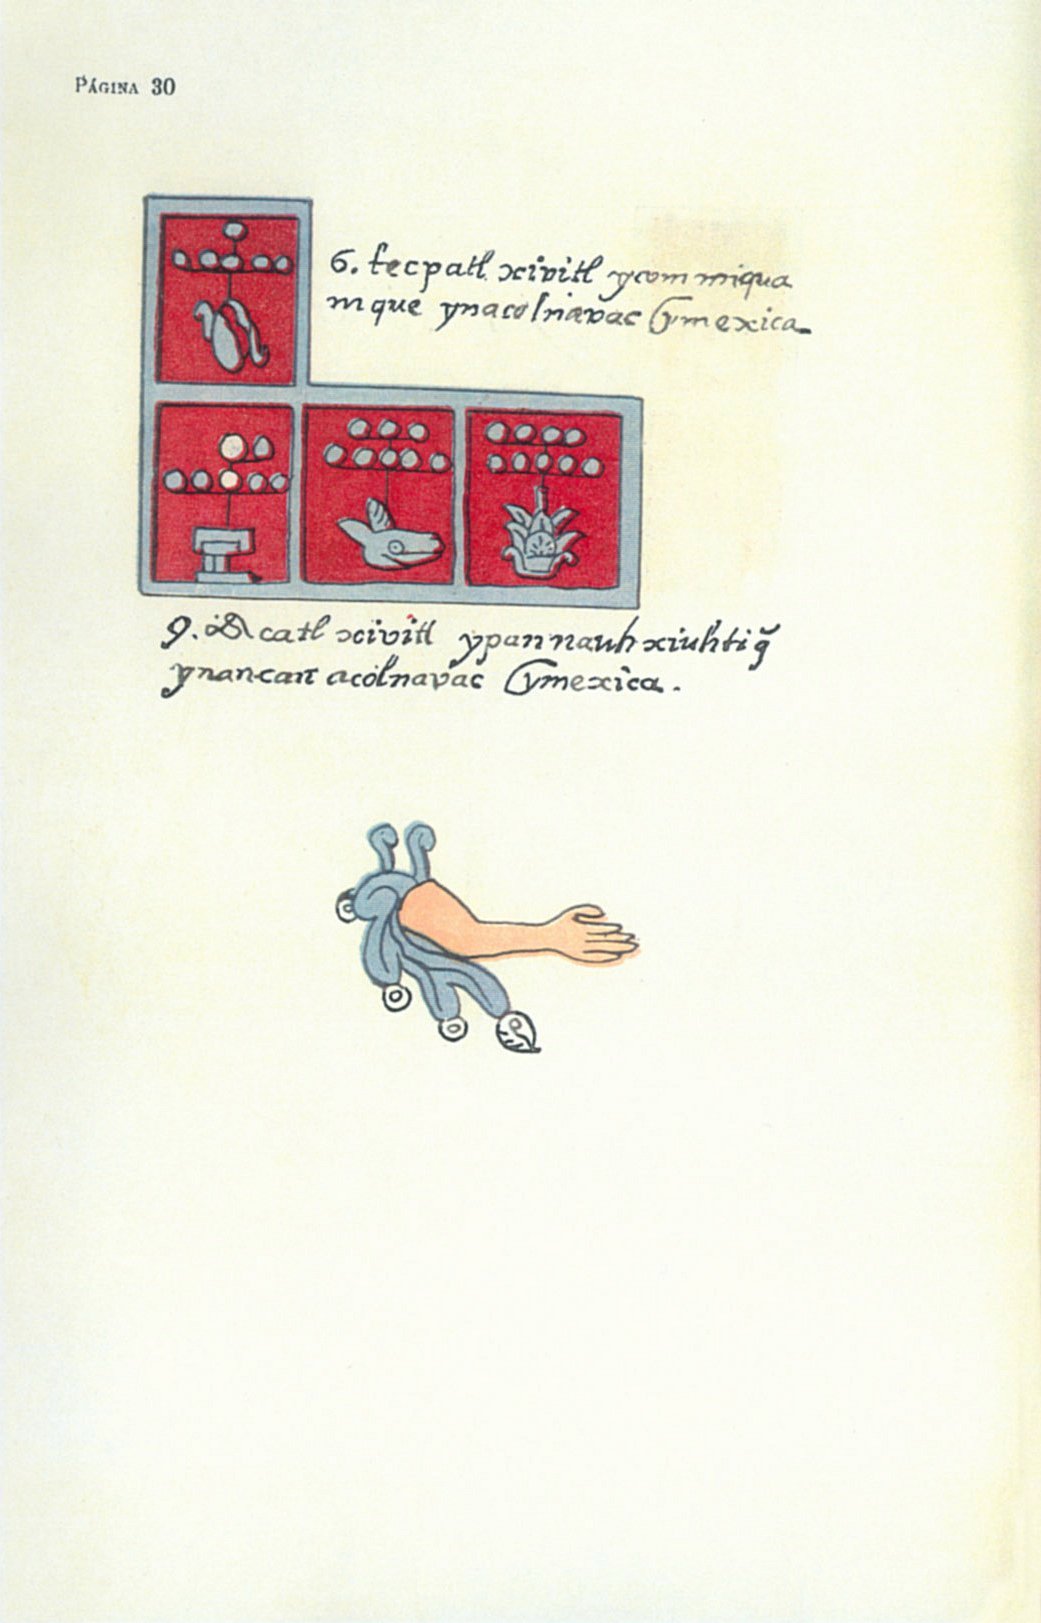 PÁGINA 30
6. tecpatl xivitl ycom miqua
mque ynacolnavac Cymexica
9. Acatl xivitl ypan nauh xiuhtiq̃
ynancan acolnavac Cymexica.